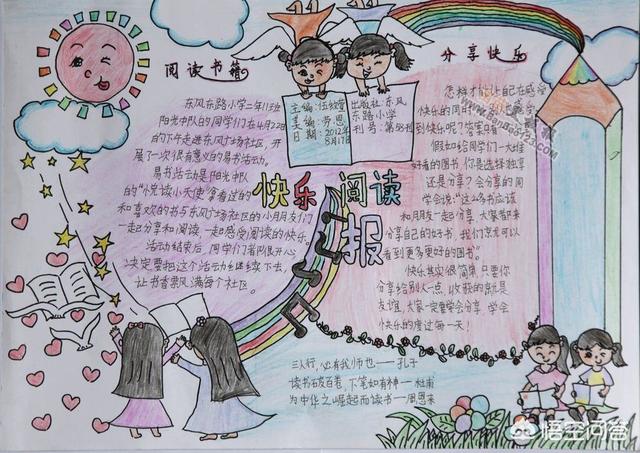 阅读书籍
分享快乐
主编:伍欣莹
美编:劳恩
日期:2012年
8月17日
出版社:东风
东路小学
刊号:第58刊
快乐阅读
报
东风东路小学二年11班
阳光中队的同学们在4月22日
的下午走进东风广场社区,开
展了一次很有意义的易书活动。
易书活动是阳光中队
的“悦读小天使”拿看过的
和喜欢的书与东风广场社区的小朋友们
一起分享和阅读,一起感受阅读的快乐。
活动结束后,同学们都很开心
决定要把这个活动继续下去,
让书香飘满每个社区。
怎样才能让自己在感受
快乐的同时
到快乐呢?答案只有
假如你给同学们一大堆
好看的图书,你是选择独享
还是分享?会分享的同
学会说:“这么多书应该
和朋友一起分享,大家都来
分享自己的好书,我们就可以
看到更多更好的图书”。
快乐其实很简单,只要你
分享给别人一点,收获的就是
友谊,大家一定要学会分享,学会
快乐的度过每一天!
三人行,必有我师也——孔子
读书破百卷,下笔如有神——杜甫
为中华之崛起而读书——周恩来
悟空问答